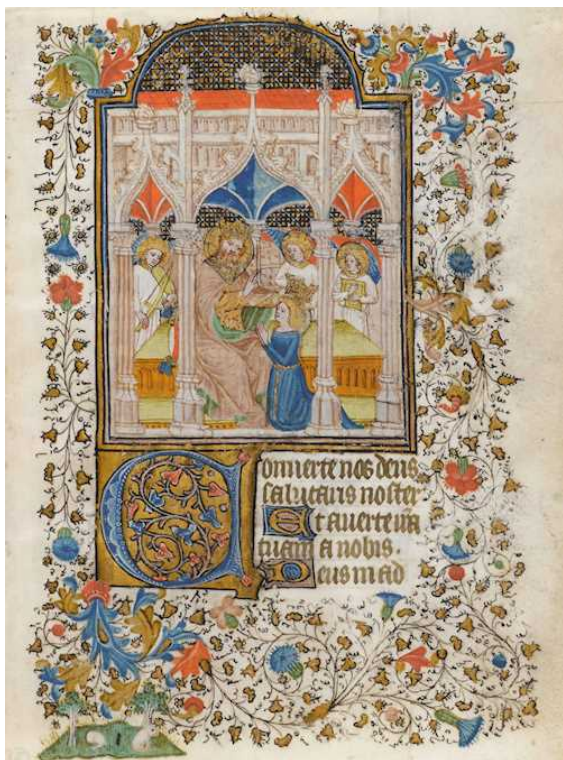 Conuerte nos deus
salutaris noster
Et auerte ira
tuam a nobis.
Deus in ad